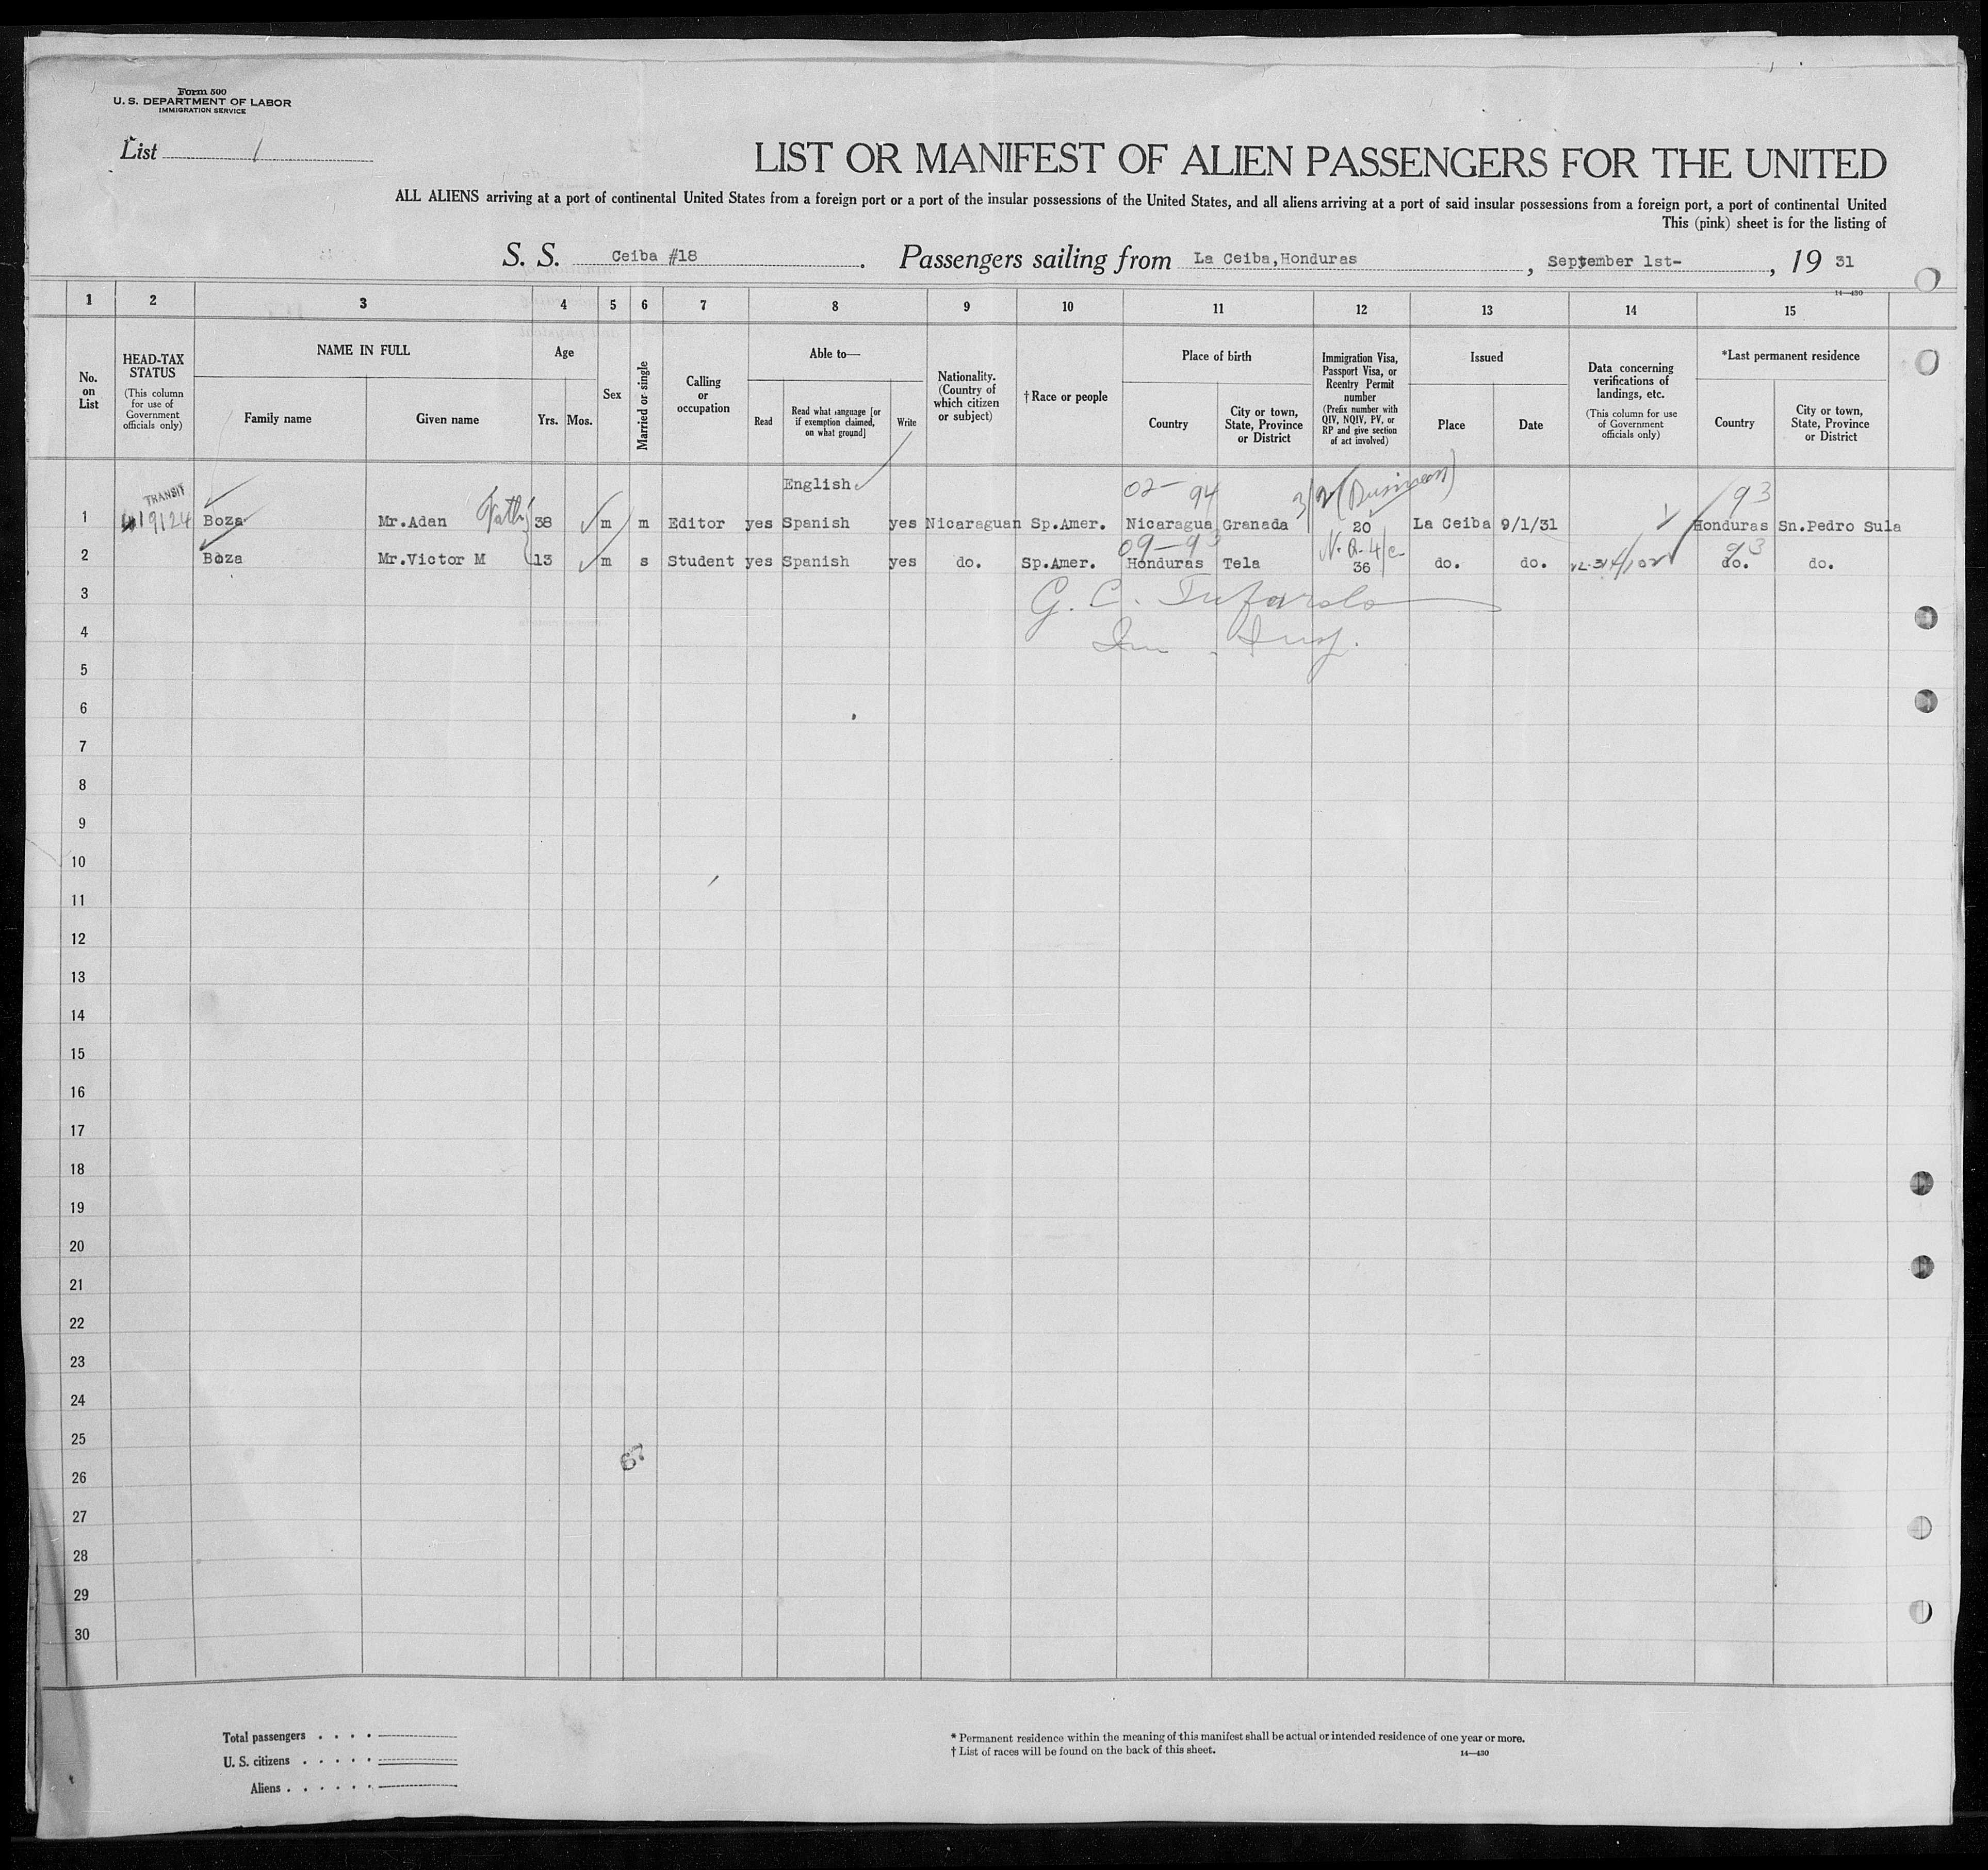 Form 500
U. S. DEPARTMENT OF LABOR
IMMIGRATION SERVICE
List 1
LIST OR MANIFEST OF ALIEN PASSENGERS FOR THE UNITED
ALL ALIENS arriving at a port of continental United States from a foreign port or a port of the insular possessions of the United States, and all aliens arriving at a port of said insular possessions from a foreign port, a port of continental United
This (pink) sheet is for the listing of
S. S. Ceiba #18 . Passengers sailing from La Ceiba,Honduras , September 1st- , 19 31
14—430
1 2 3 4 5 6 7 8 9 10 11 12 13 14 15
No. on List
HEAD-TAX STATUS
(This column for use of Government officials only)
NAME IN FULL
Family name Given name
Age
Yrs. Mos.
Sex
Married or single
Calling or occupation
Able to—
Read
Read what language [or if exemption claimed, on what ground]
Write
Nationality. (Country of which citizen or subject)
†Race or people
Place of birth
Country
City or town, State, Province or District
Immigration Visa, Passport Visa, or Reentry Permit number
(Prefix number with QIV, NQIV, PV, or RP and give section of act involved)
Issued
Place Date
Data concerning verifications of landings, etc.
(This column for use of Government officials only)
*Last permanent residence
Country
City or town, State, Province or District
TRANSIT English 02-94 3/2 (Business) 93
1 Boza Mr.Adan 38 m m Editor yes Spanish yes Nicaraguan Sp.Amer. Nicaragua Granada 20 La Ceiba 9/1/31 Honduras Sn.Pedro Sula
09-93 93
2 Boza Mr.Victor M 13 m s Student yes Spanish yes do. Sp.Amer. Honduras Tela 36 do. do. do. do.
3
4
5
6
7
8
9
10
11
12
13
14
15
16
17
18
19
20
21
22
23
24
25
67
26
27
28
29
30
Total passengers . . . .
U. S. citizens . . . . .
Aliens . . . . . .
* Permanent residence within the meaning of this manifest shall be actual or intended residence of one year or more.
† List of races will be found on the back of this sheet. 14—430